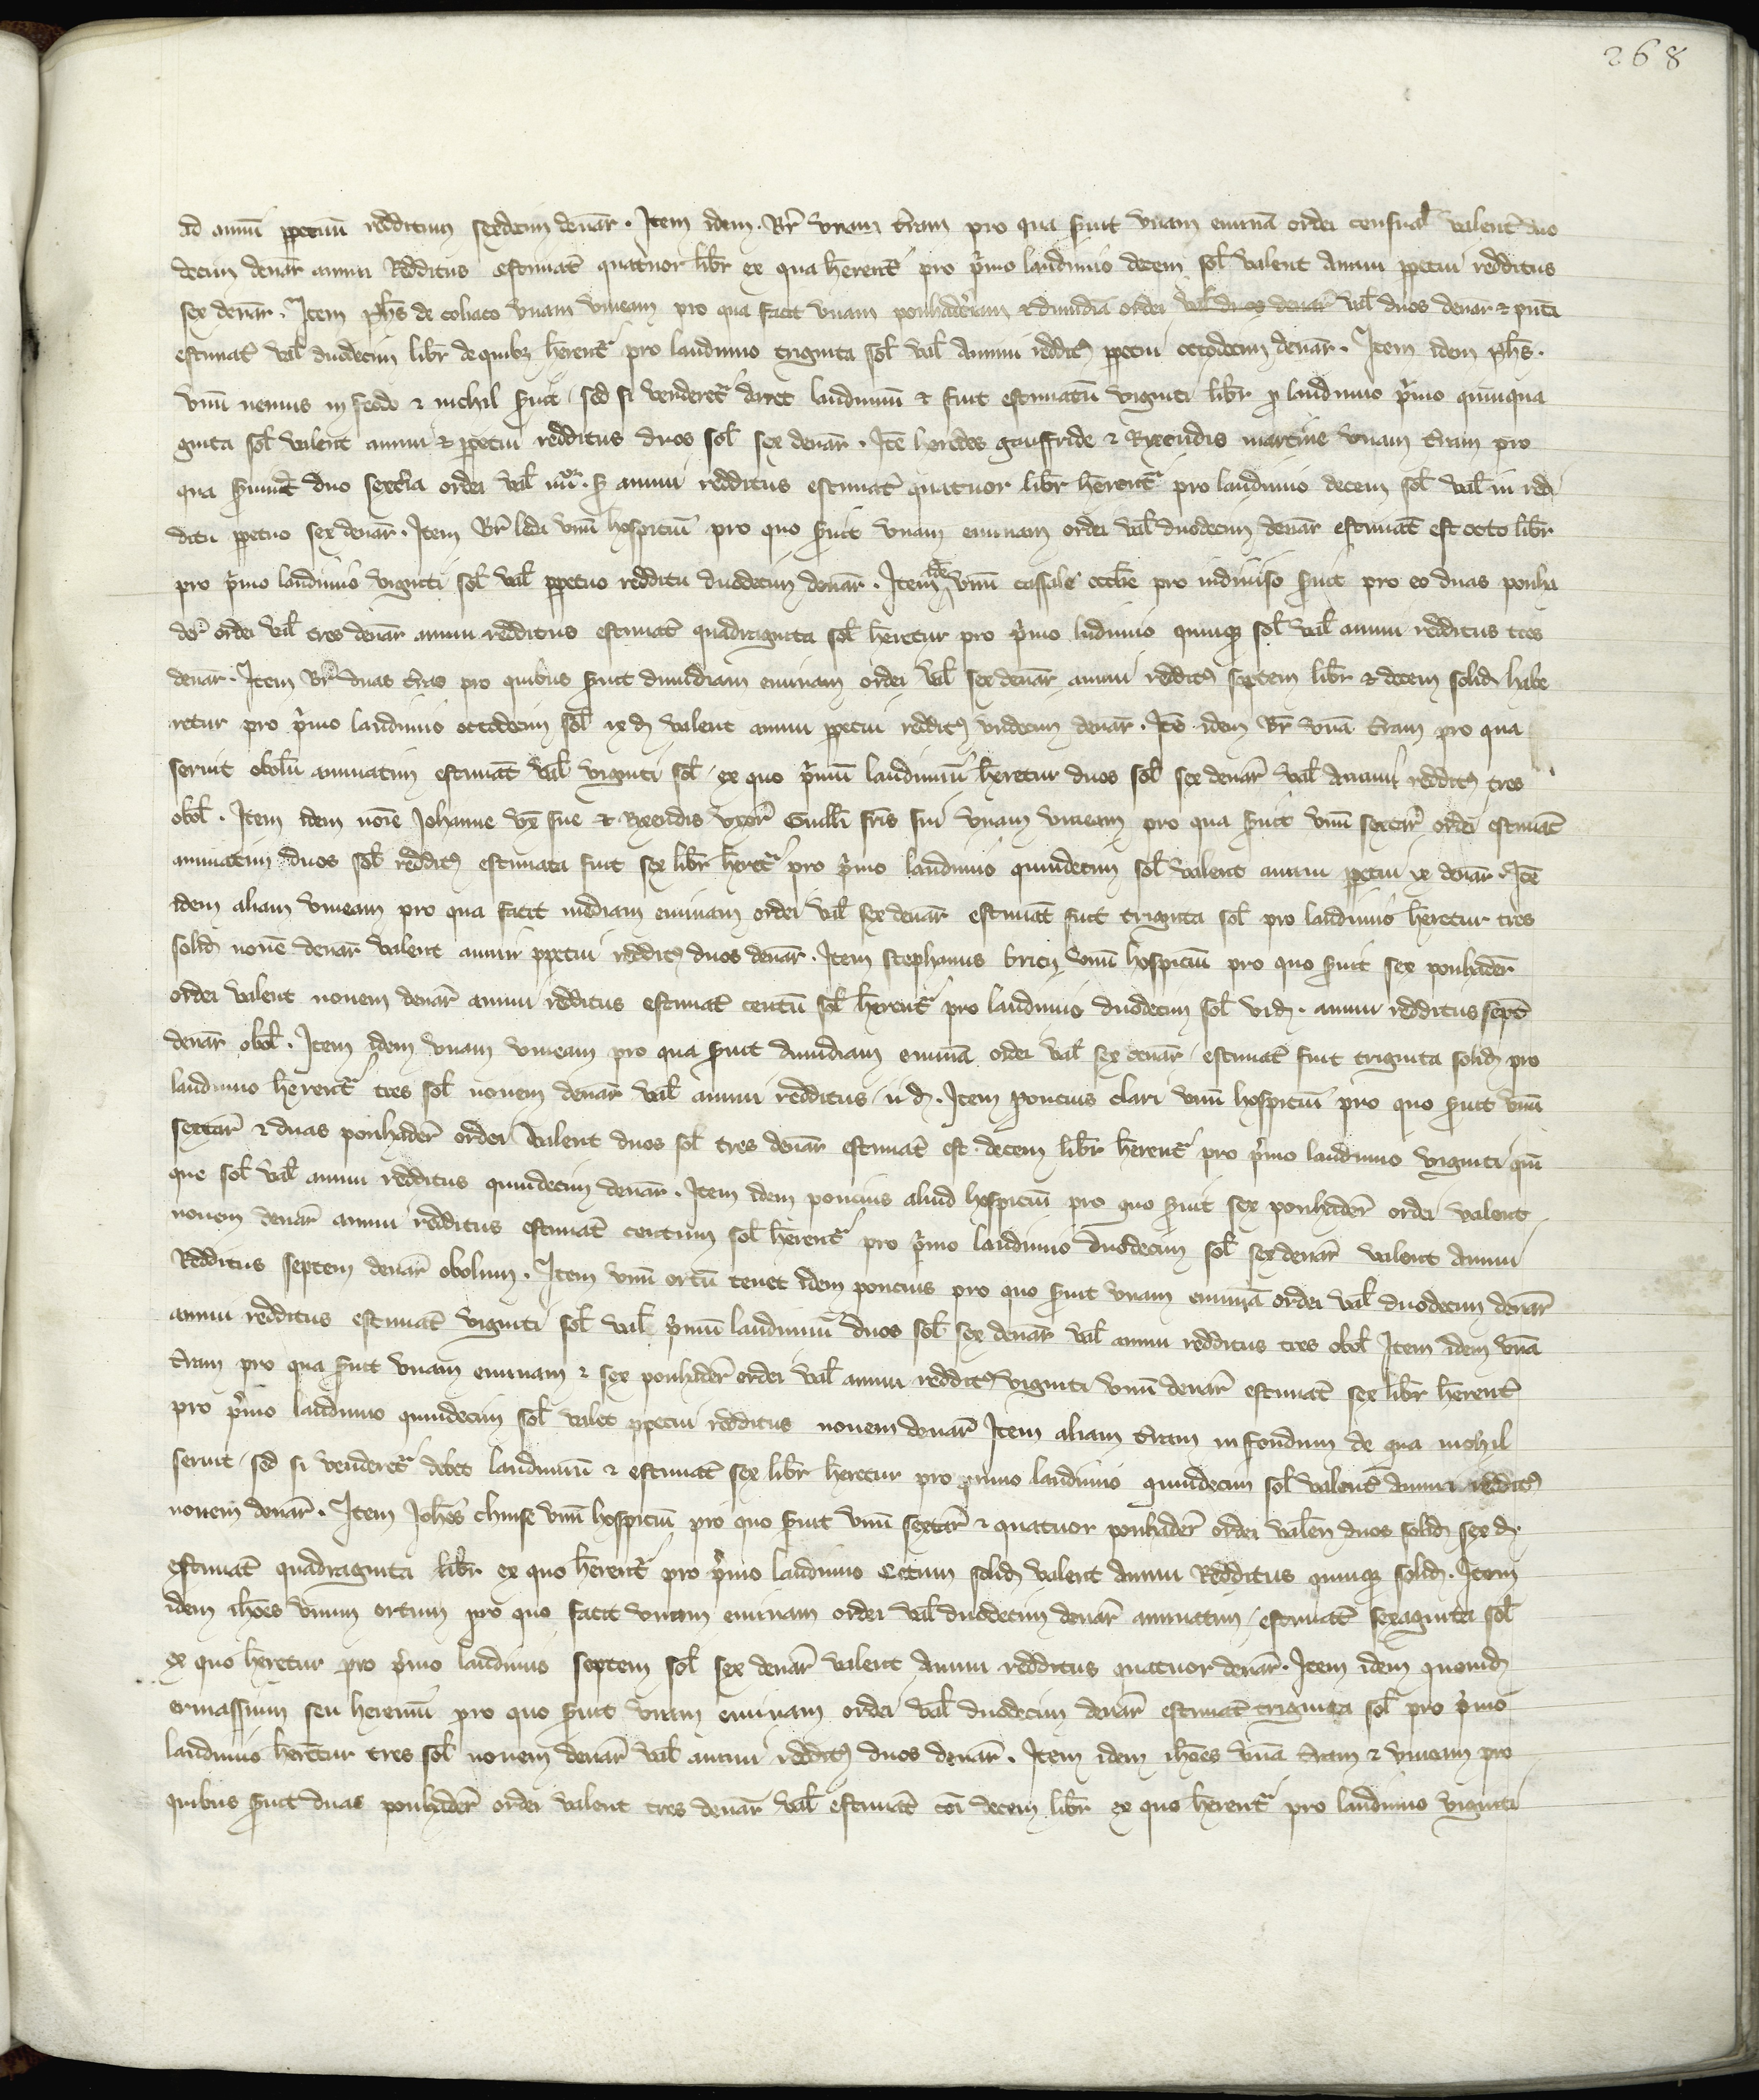 268
ad annū ppetuū redditum sexdecim denar̄. Item idem Br̄ unam t̄ram pro qua s̄uit unam eminā ordei censual̄ valent̄ duo
decim denar̄ annui Redditus estimat̄ quatuor libr̄ ex qua h̄erent̄ pro p̄mo laudimio decem sol̄ valent annui ppetui redditus
sex denar̄. Item ph̄s de coliaco unam vineam pro qua facit unam ponhaderiam & dimidiā ordei val̄ duos denar̄ val̄ duos denar̄ & puct̄i
estimat̄ val̄ duodecim libr̄ de quibʒ h̄erent̄ pro laudimio triginta sol̄ val̄ annui reddit9 ppetui octodecim denar̄. Item idem ph̄s.
unū nemus in feodo & nichil s̄uit, sed si venderet̄ daret laudimiū & fuit estimatū viginti libr̄ p laudimio p̄mo quinqua
ginta sol̄ valent annui & ppetui redditus duos sol̄ sex denar̄. Itē heredes gauffride & Ryxendis martine unam t̄ram pro
qua s̄uiūt duo sext̄ia ordei val̄ iiiior. s̄ annui redditus estimat̄ quatuor libr̄ h̄erent̄ pro laudimio decem sol̄ val̄ in red
ditu ppetuo sex denar̄. Item Br̄ ledi unū hospiciū pro quo s̄uit unam eminam ordei val̄ duodecim denar̄ estimat̄ est octo libr̄
pro p̄mo laudimio viginti sol̄ val̄ ppetuo redditu duodecim denar̄. Item idē unū cassale eccl̄ie pro indiviso s̄uit pro eo duas ponha
der̄ ordei val̄ tres denar̄ annui redditus estimat̄ quadraginta sol̄ h̄eretur pro p̄mo ludimio quinqʒ sol̄ val̄ annui redditus tres
denar̄. Item Br̄ duas t̄ras pro quibus s̄uit dimidiam eminam ordei val̄ sex denar̄ annui reddit9 septem libr̄ & decem solid̄ habe
retur pro p̄mo laudimio octodecim sol̄ ix d̄ valent annui ppetui reddit9 undecim denar̄. Itē idem Br̄ unā t̄ram pro qua
seruit obolū annuatim estimat̄ val̄ viginti sol̄, ex quo p̄mū laudimiū h̄eretur duos sol̄ sex denar̄ val̄ annui reddit9 tres
obol̄. Item idem noīe Johanne ux̄ sue & Ryxendis uxor̄ Guill̄i fr̄is sui unam vineam pro qua s̄uit unū sextar̄ ordei estimat̄
annuatim duos sol̄ reddit9 estimata fuit sex libr̄ h̄eret̄ pro p̄mo laudimio quindecim sol̄ valent annui ppetui ix denar̄. Itē
idem aliam vineam pro qua facit mediam eminam ordei val̄ sex denar̄ estimat̄ fuit triginta sol̄ pro laudimio h̄eretur tres
solid̄ nouē denar̄ valent annui ppetui reddit9 duos denar̄. Item stephanus bricij unū hospiciū pro quo s̄uit sex ponhader̄
ordei valent nouem denar̄ annui redditus estimat̄ centū sol̄ h̄erent̄ pro laudimio duodecim sol̄ vi d̄. annui redditus septē
denar̄ obol̄. Item idem unam vineam pro qua s̄uit dimidiam eminā ordei val̄ sex denar̄, estimat̄ fuit triginta solid̄ pro
laudimio h̄erent̄ tres sol̄ nouem denar̄ val̄ annui redditus ii d̄. Item poncius clari unū hospiciū pro quo s̄uit unū
sextar̄ & duas ponhader̄ ordei valent duos sol̄ tres denar̄ estimat̄ est decem libr̄ h̄erent̄ pro p̄mo laudimio viginti quī
que sol̄ val̄ annui redditus quindecim denar̄. Item idem poncius aliud hospiciū pro quo s̄uit sex ponhader̄ ordei valent
nouem denar̄ annui redditus estimat̄ centum sol̄ h̄erent̄ pro p̄mo laudimio duodecim sol̄ sex denar̄ valent annui
Redditus septem denar̄ obolum. Item unū ortū tenet idem poncius pro quo s̄uit unam eminā ordei val̄ duodecim denar̄
annui redditus estimat̄ viginti sol̄ val̄ p̄mū laudimiū duos sol̄ sex denar̄ val̄ annui redditus tres obol̄ Item idem unā
t̄ram pro qua s̄uit unam eminam & sex ponhader̄ ordei val̄ annui reddit9 viginti unū denar̄ estimat̄ sex libr̄ h̄erent̄
pro p̄mo laudimio quindecim sol̄ valet ppetui redditus nouem denar̄ Item aliam t̄ram in feudum de qua nichil
seruit, sed si venderet̄ debet laudimiū & estimat̄ sex libr̄ h̄eretur pro primo laudimio quindecim sol̄ valent̄ annui reddit9
nouem denar̄. Item Joh̄es chinse unū hospiciū pro quo s̄uit unū sextar̄ & quatuor ponhader̄ ordei valen̄ duos solid̄ sex d̄.
estimat̄ quadraginta libr̄ ex quo h̄erent̄ pro p̄mo laudimio Cētum solid̄ valent annui Redditus quinqʒ solid̄. Item
idem ih̄oes unum ortum pro quo facit unam eminam ordei val̄ duodecim denar̄ annuatim, estimat̄ sexaginta sol̄
ex quo h̄eretur pro p̄mo laudimio septem sol̄ sex denar̄ valent annui redditus quatuor denar̄. Item idem quond̄
ermassium seu heremū pro quo s̄uit unam eminam ordei val̄ duodecim denar̄ estimat̄ triginta sol̄ pro p̄mo
laudimio h̄erētur tres sol̄ nouem denar̄ val̄ annui reddit9 duos denar̄. Item idem ih̄oes unā t̄ram & vineam pro
quibus s̄uit duas ponhader̄ ordei valent tres denar̄ val̄ estimat̄ cōi decem libr̄ ex quo h̄erent̄ pro laudimio viginti